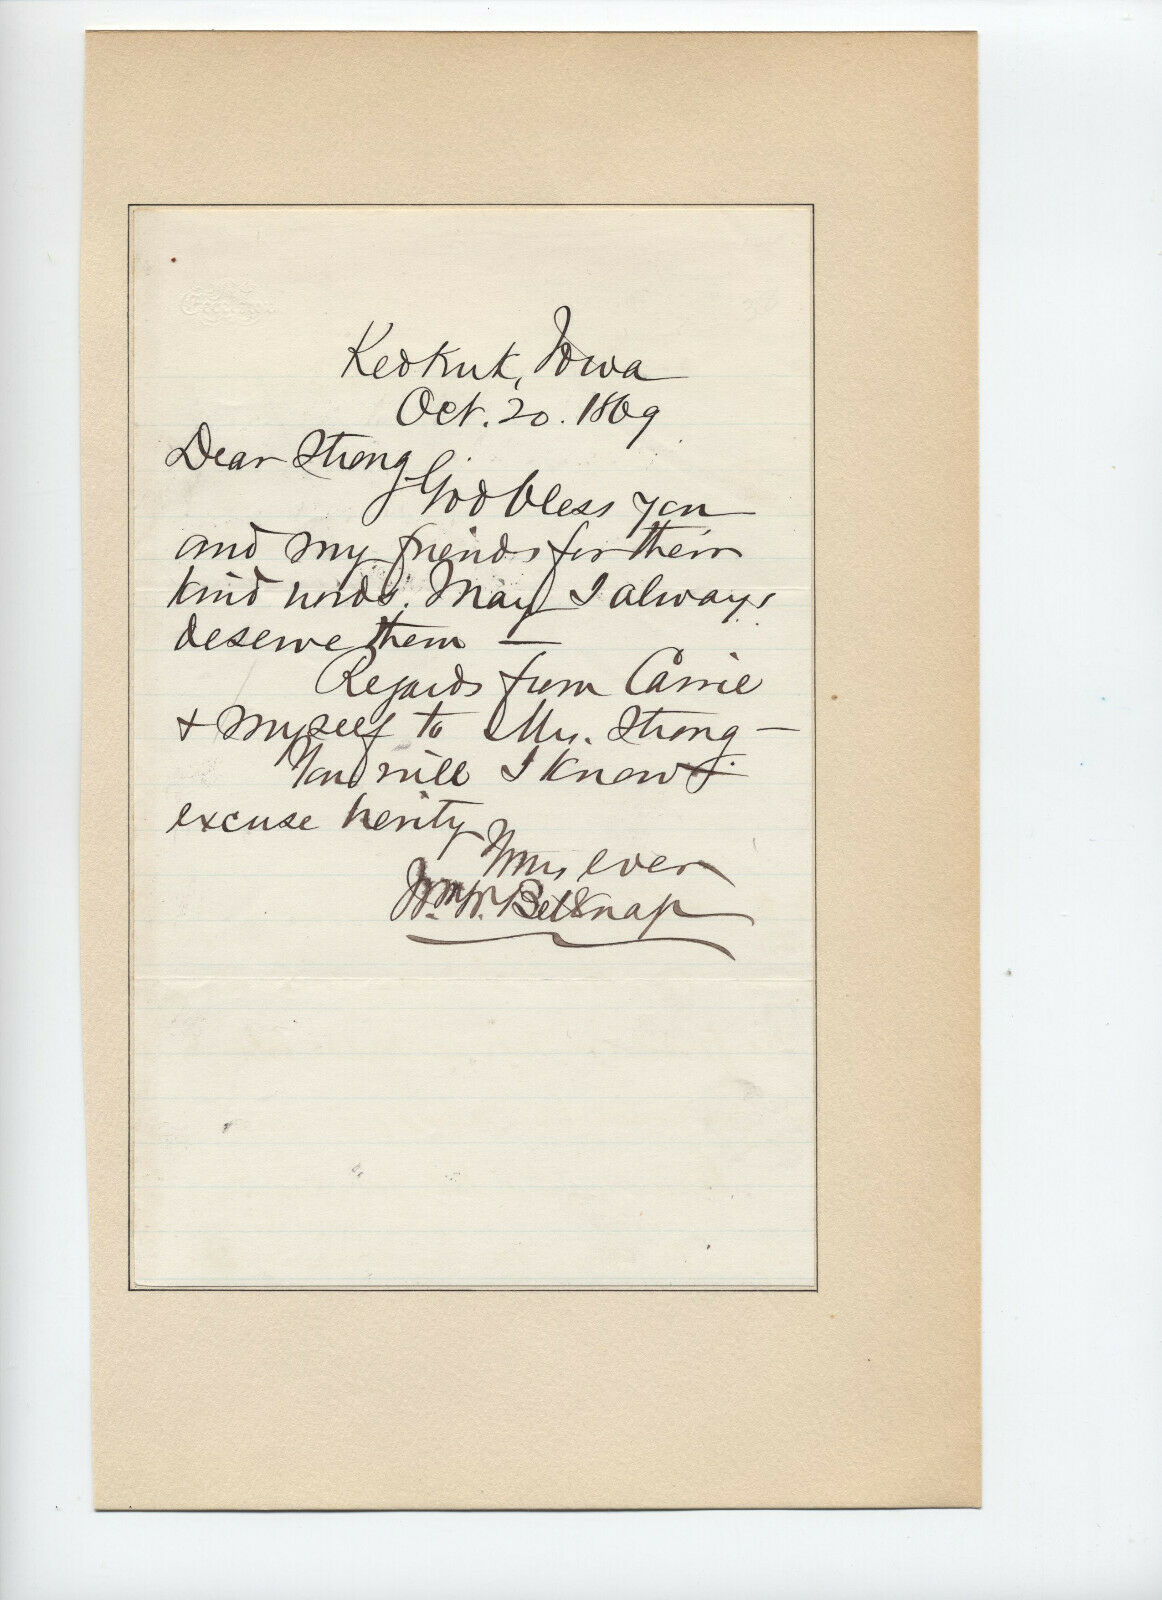 Keokuk, Iowa
Oct. 20. 1869
Dear Strong
God bless you
and my friends for their
kind words. May I always
deserve them —
Regards from Carrie
& myself to Mrs. Strong —
You will I know
excuse brevity
Yours ever
Wm. W. Belknap